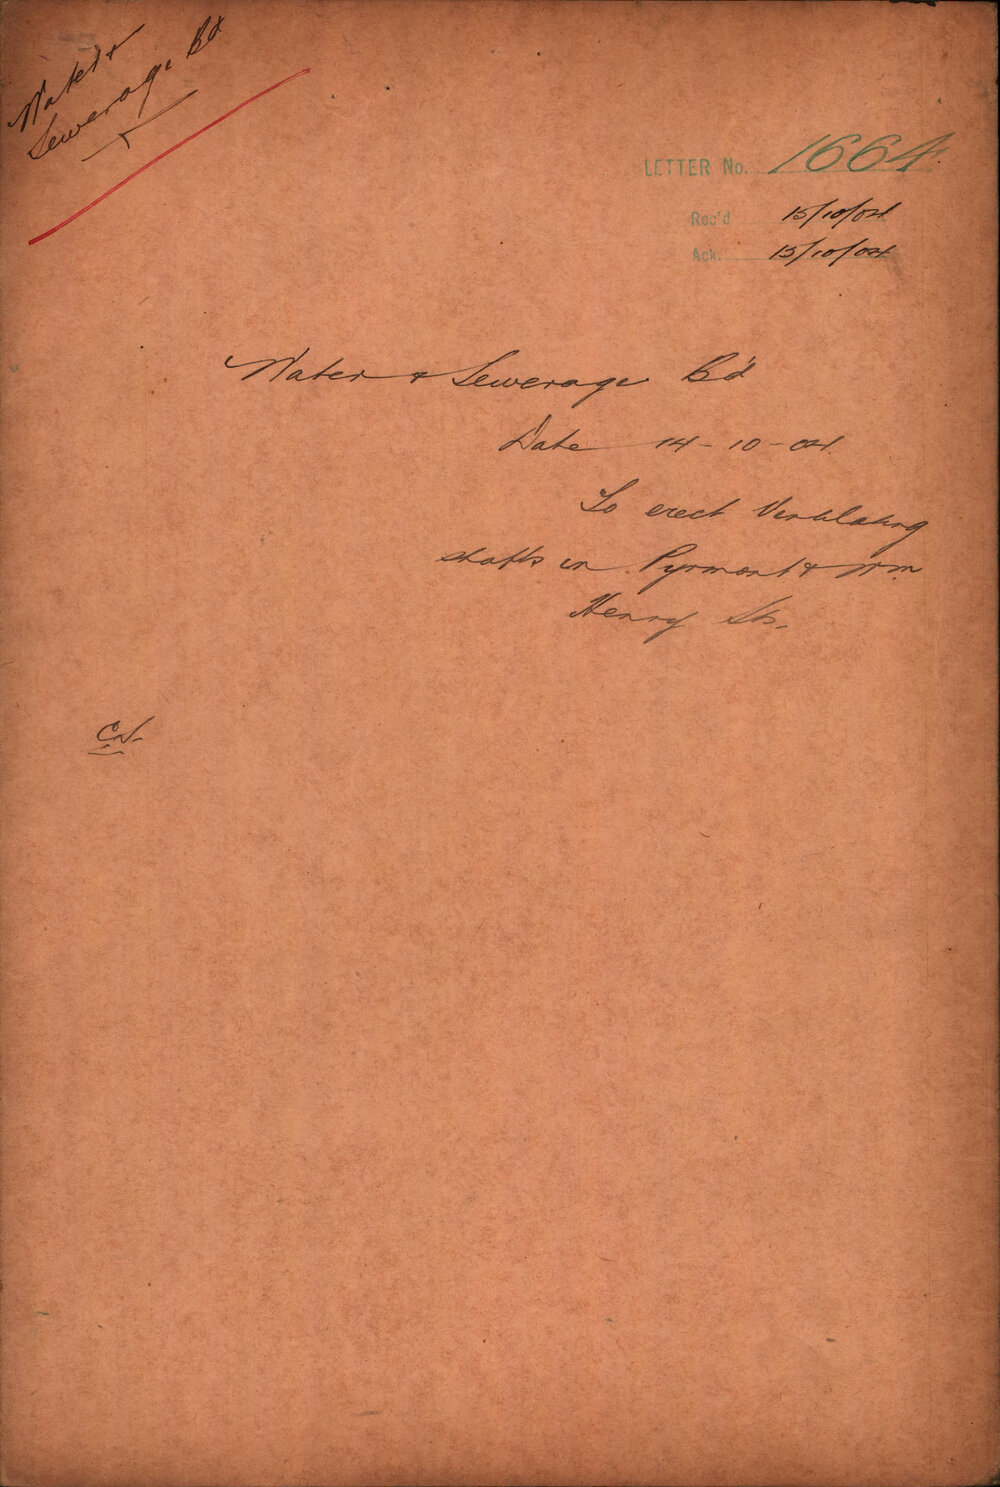 Water &
Sewerage Bd
LETTER No. 1664
Rec'd 15/10/04
Ack. 15/10/04
Water & Sewerage B'd
Date 14-10-04.
To erect Ventilating
shafts in Pyrmont & Wm
Henry Sts.